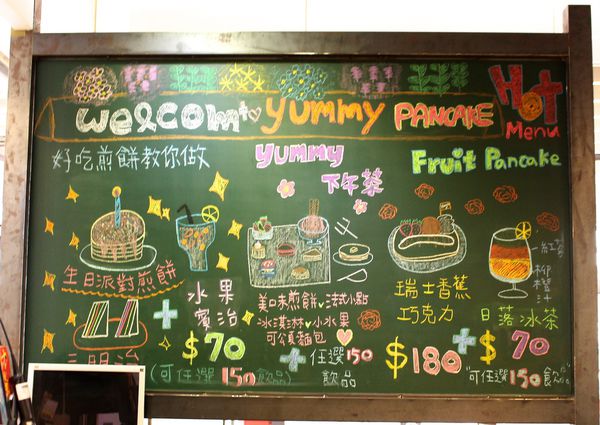 welcom to yummy PANCAKE
Hot
Menu
好吃煎餅教你做
yummy
下午茶
Fruit Pancake
生日派對煎餅
+
水果
賓治
三明治
$70
(可任選150飲品)
美味煎餅♥法式小點
冰淇淋♥小水果
可頌麵包
+任選150
飲品
瑞士香蕉
巧克力
$180
+
紅茶
柳橙汁
日落冰茶
$70
"可任選150飲"